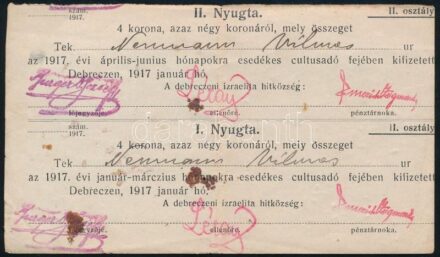 II. Nyugta. II. osztály
szám.
1917.
4 korona, azaz négy koronáról, mely összeget
Tek Neumann Vilmos ur
az 1917. évi április-junius hónapokra esedékes cultusadó fejében kifizetett
Debreczen, 1917 január hó,
A debreczeni izraelita hitközség:
főjegyzője. ellenőre. pénztárnoka.
I. Nyugta. II. osztály
szám.
1917.
4 korona, azaz négy koronáról, mely összeget
Tek Neumann Vilmos ur
az 1917. évi január-márczius hónapokra esedékes cultusadó fejében kifizetett
Debreczen, 1917 január hó,
A debreczeni izraelita hitközség:
ellenőre. pénztárnoka.